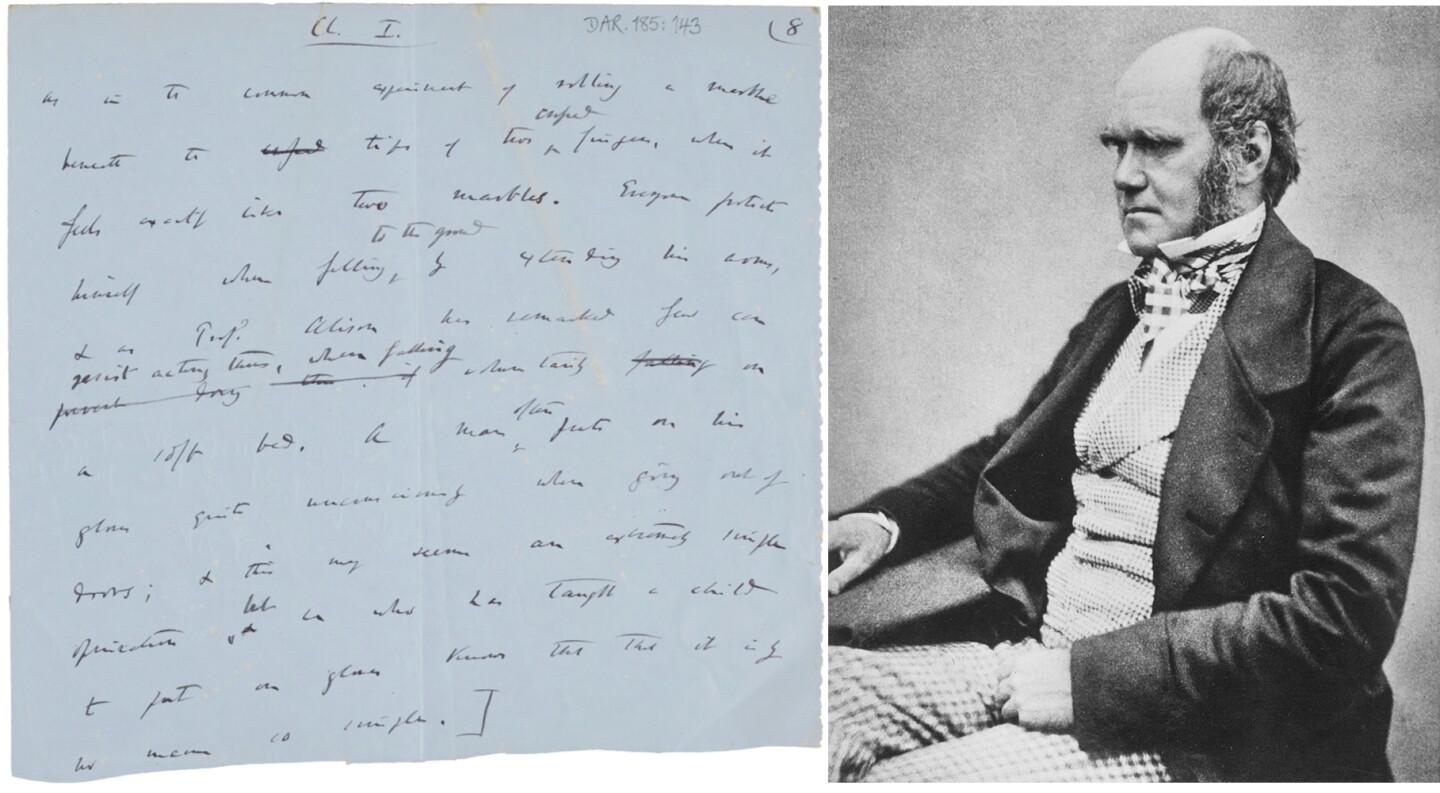 Ch. I. DAR.185:143 (8
as in the common experiment of rolling a marble
crossed
beneath the crossed tips of two fingers, when it
feels exactly like two marbles. Everyone protects
to the ground
himself when falling, by extending his arms,
& as Prof. Alison has remarked few can
resist acting thus, when falling
prevent doing thus if voluntarily falling on
a soft bed. A man often puts on his
gloves quite unconsciously when going out of
doors; & this may seem an extremely simple
operation but he who has taught a child
to put on gloves knows that that it is by
no means so simple.]